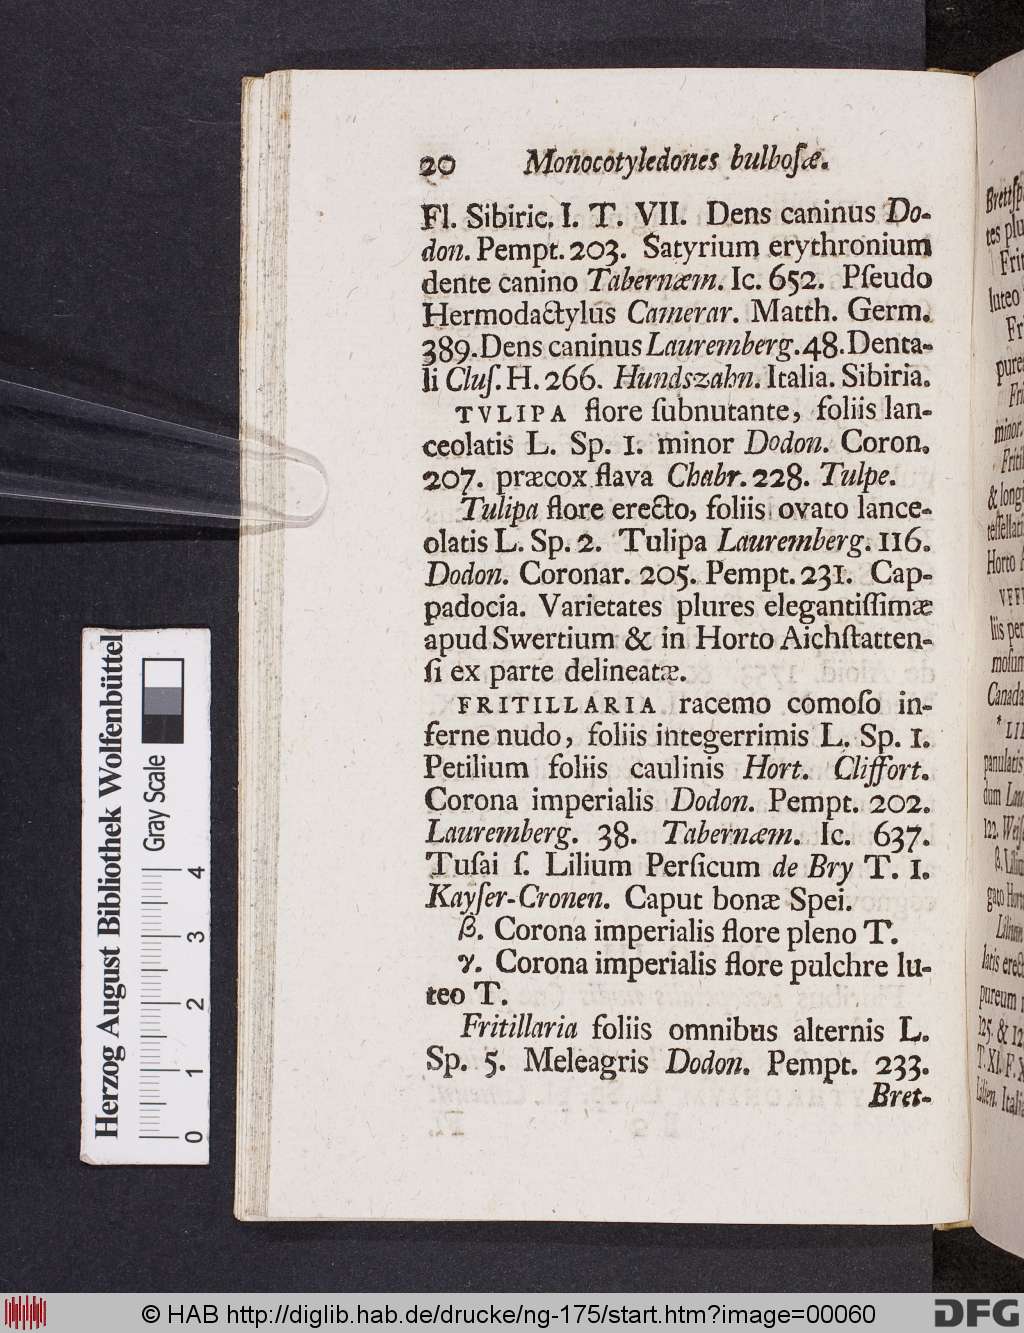 20 Monocotyledones bulboſæ.
Fl. Sibiric. I. T. VII. Dens caninus Do-
don. Pempt. 203. Satyrium erythronium
dente canino Tabernæm. Ic. 652. Pſeudo
Hermodactylus Camerar. Matth. Germ.
389. Dens caninus Lauremberg. 48. Denta-
li Cluſ. H. 266. Hundszahn. Italia. Sibiria.
TVLIPA flore ſubnutante, foliis lan-
ceolatis L. Sp. 1. minor Dodon. Coron.
207. præcox flava Chabr. 228. Tulpe.
Tulipa flore erecto, foliis ovato lance-
olatis L. Sp. 2. Tulipa Lauremberg. 116.
Dodon. Coronar. 205. Pempt. 231. Cap-
padocia. Varietates plures elegantiſſimæ
apud Swertium & in Horto Aichſtatten-
ſi ex parte delineatæ.
FRITILLARIA racemo comoſo in-
ferne nudo, foliis integerrimis L. Sp. 1.
Petilium foliis caulinis Hort. Cliffort.
Corona imperialis Dodon. Pempt. 202.
Lauremberg. 38. Tabernæm. Ic. 637.
Tuſai ſ. Lilium Perſicum de Bry T. 1.
Kayſer-Cronen. Caput bonæ Spei.
β. Corona imperialis flore pleno T.
γ. Corona imperialis flore pulchre lu-
teo T.
Fritillaria foliis omnibus alternis L.
Sp. 5. Meleagris Dodon. Pempt. 233.
Bret-
Brettſp
tes plu
Frit
luteo
Fr
pure
Fri
minor.
Fritil
& longi
teſſellat
Horto
VFF
liis per
moſum
Canada
* LIL
panulatis
dum
122. Weiſ
β. Lilium
gato Hort
Lilium
latis erect
pureum
125. & 12
T. XI. F. X
Lilien. Itali
Herzog August Bibliothek Wolfenbüttel
Gray Scale
0 1 2 3 4
© HAB http://diglib.hab.de/drucke/ng-175/start.htm?image=00060
DFG